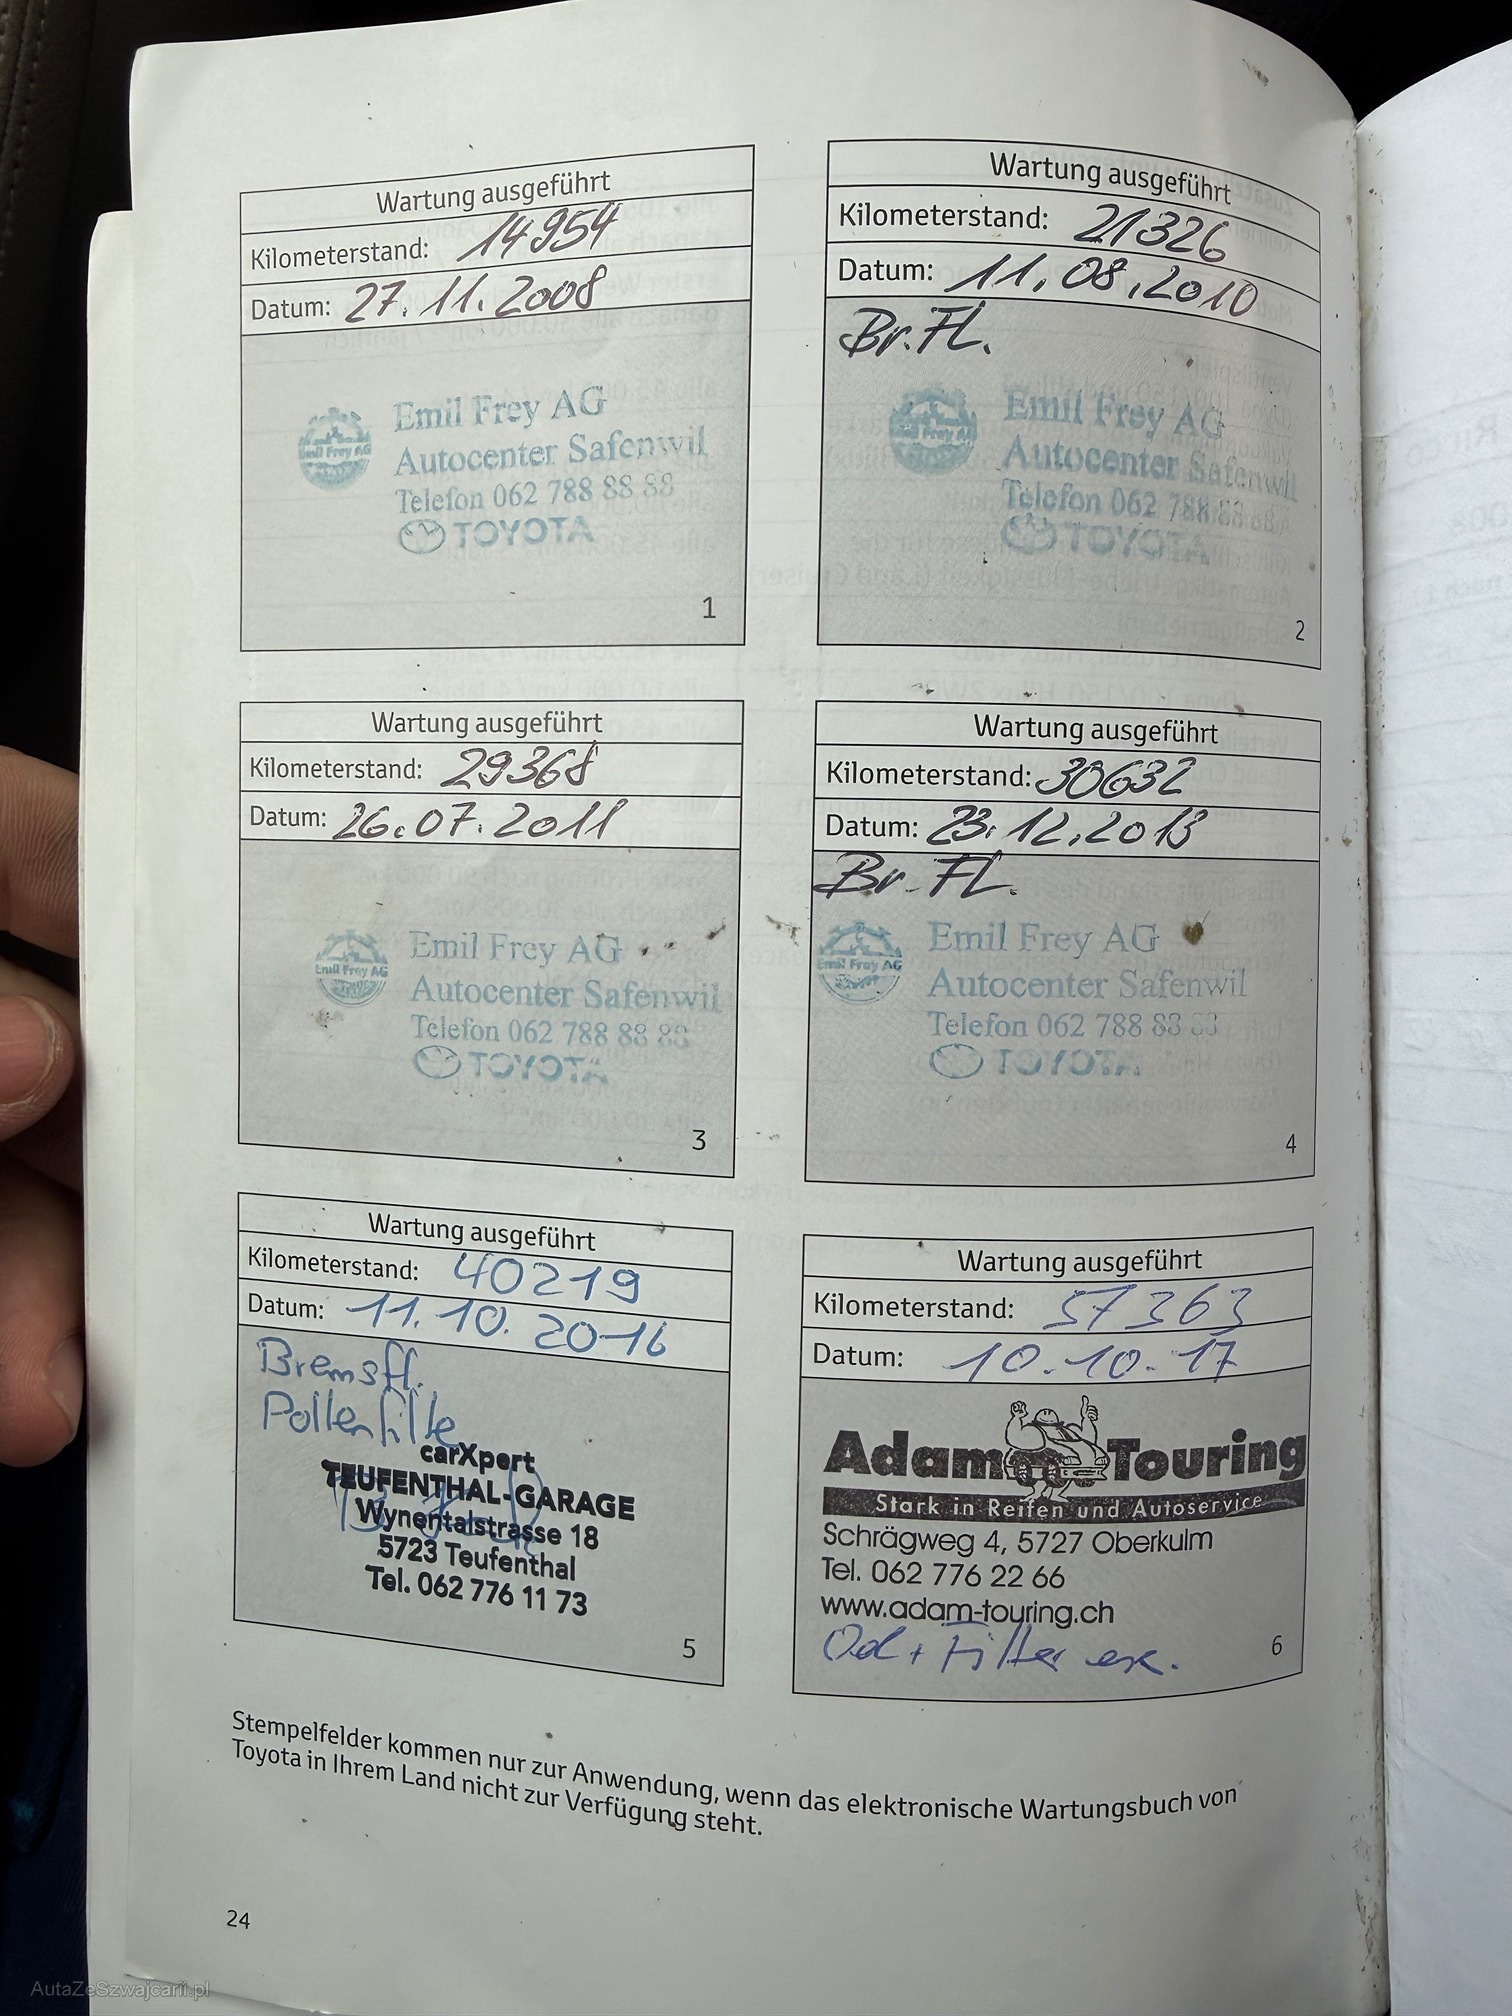 Wartung ausgeführt
Kilometerstand: 14954
Datum: 27.11.2008
Emil Frey AG
Emil Frey AG
Autocenter Safenwil
Telefon 062 788 88 88
TOYOTA
1
Wartung ausgeführt
Kilometerstand: 21326
Datum: 11.08.2010
Br. Fl.
Emil Frey AG
Emil Frey AG
Autocenter Safenwil
Telefon 062 788 88 88
TOYOTA
2
Wartung ausgeführt
Kilometerstand: 29368
Datum: 26.07.2011
Emil Frey AG
Emil Frey AG
Autocenter Safenwil
Telefon 062 788 88 88
TOYOTA
3
Wartung ausgeführt
Kilometerstand: 30632
Datum: 23.12.2013
Br. Fl.
Emil Frey AG
Emil Frey AG
Autocenter Safenwil
Telefon 062 788 88 88
TOYOTA
4
Wartung ausgeführt
Kilometerstand: 40219
Datum: 11.10.2016
Bremsfl.
Pollenfilte
carXpert
TEUFENTHAL-GARAGE
Wynentalstrasse 18
5723 Teufenthal
Tel. 062 776 11 73
5
Wartung ausgeführt
Kilometerstand: 57363
Datum: 10.10.17
Adam Touring
Stark in Reifen und Autoservice
Schrägweg 4, 5727 Oberkulm
Tel. 062 776 22 66
www.adam-touring.ch
Oel + Filter ers.
6
Stempelfelder kommen nur zur Anwendung, wenn das elektronische Wartungsbuch von
Toyota in Ihrem Land nicht zur Verfügung steht.
24
AutaZeSzwajcarii.pl